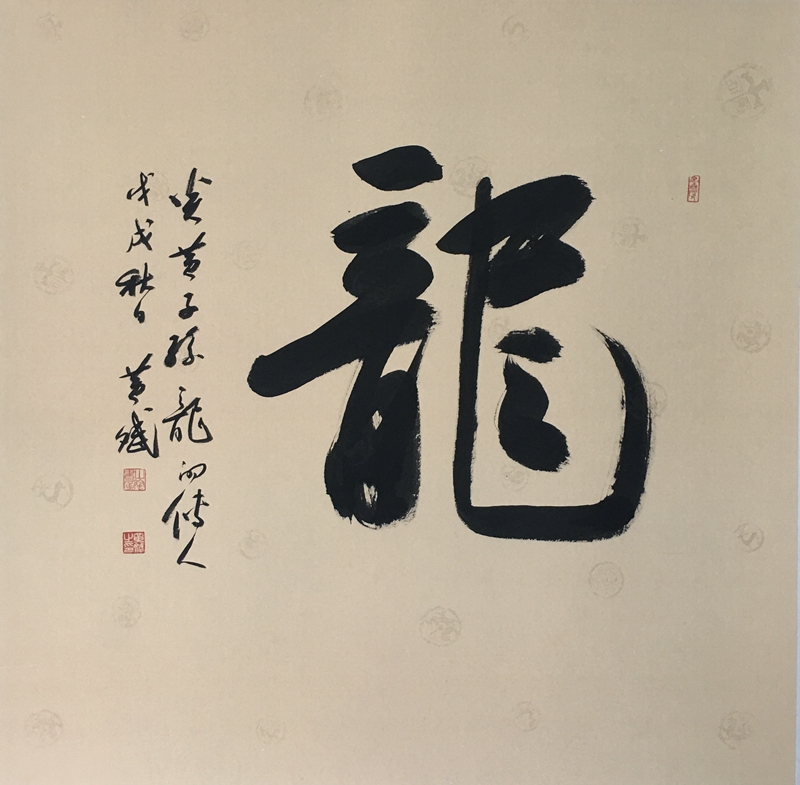 龍
炎黄子孫龍的傳人
戊戌秋日黄斌